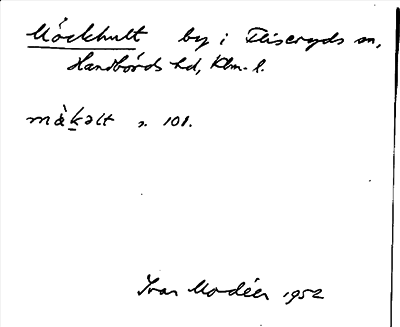 Möckhult by i Fliseryds sn,
Handbörds hd, Klm. l.
màkəlt s. 101.
Ivar Modéer 1952